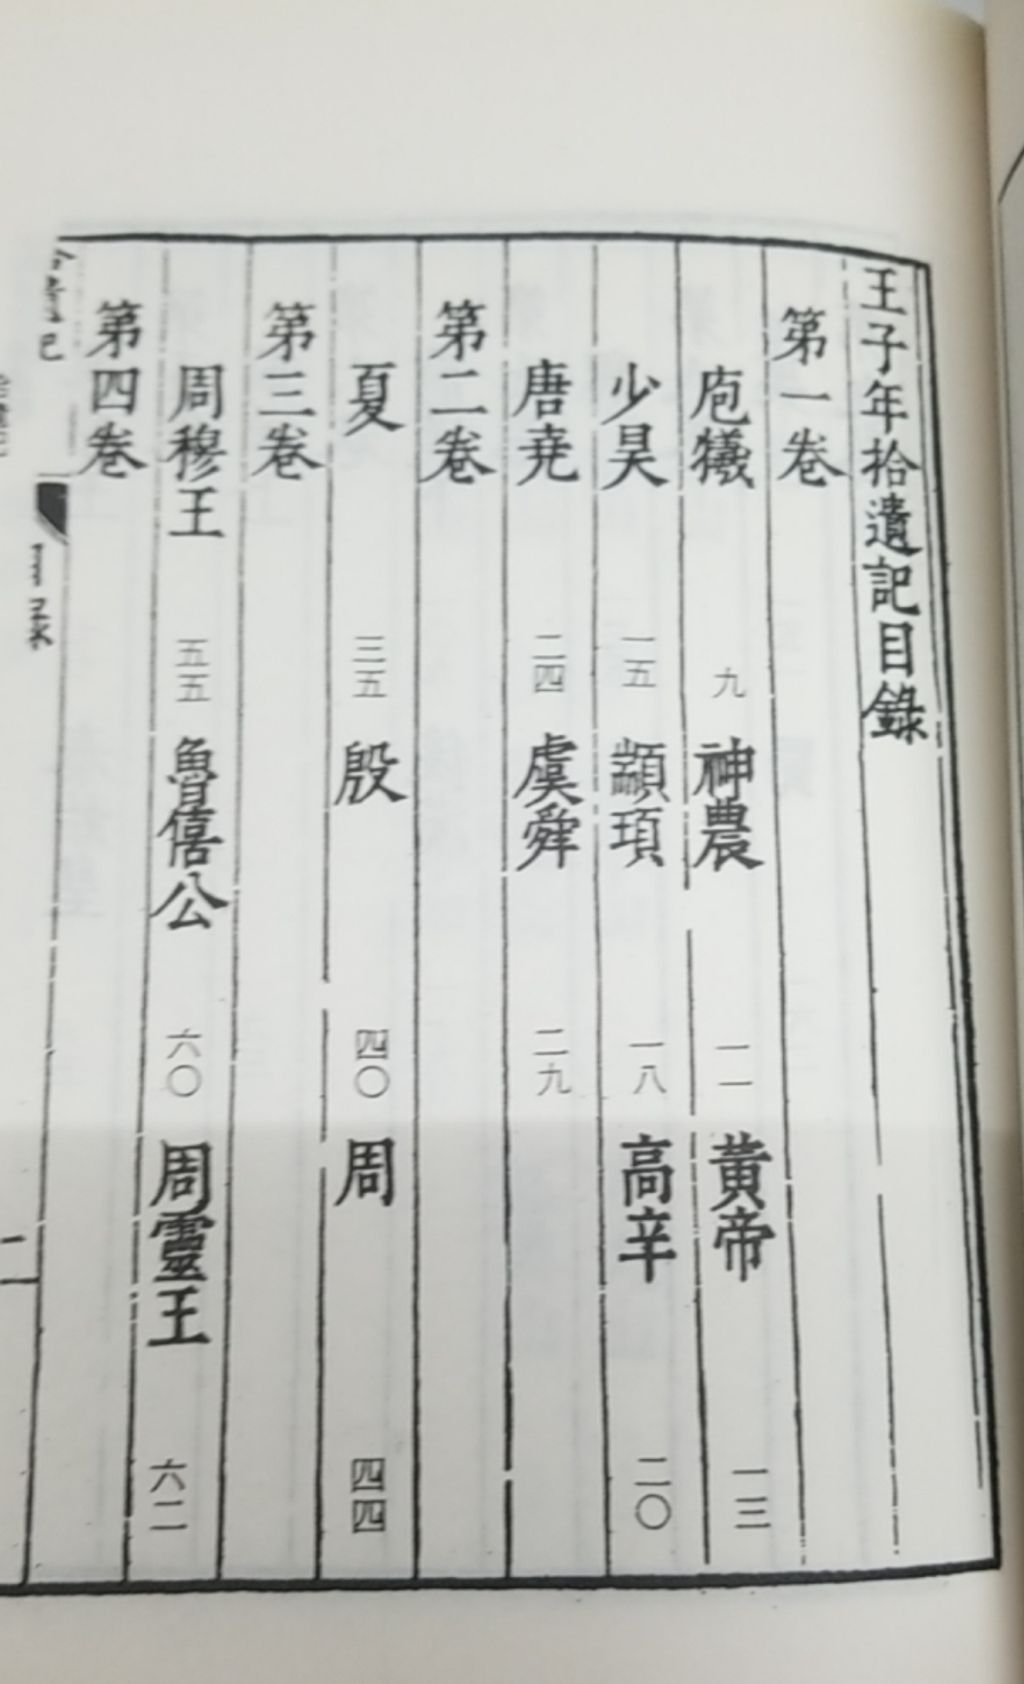 王子年拾遺記目錄
第一卷
庖犧 九 神農 一一 黃帝 一三
少昊 一五 顓頊 一八 高辛 二〇
唐堯 二四 虞舜 二九
第二卷
夏 三五 殷 四〇 周 四四
第三卷
周穆王 五五 魯僖公 六〇 周靈王 六二
第四卷
目錄
二